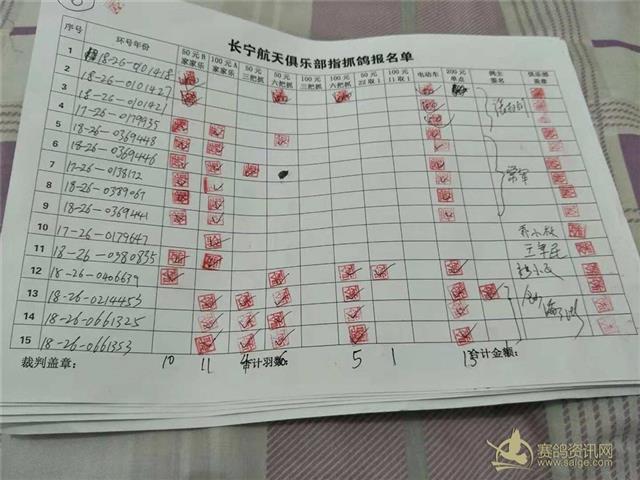 长宁航天俱乐部指抓鸽报名单
序号 环号年份 50元B家家乐 100元A家家乐 50元三把抓 50元六把抓 100元三把抓 100元六把抓 50元22取1 100元11取1 电动车 200元单点 鸽主签名 俱乐部盖章
1 18-26-0101418
2 18-26-0101427
3 18-26-0101421
4 17-26-0179935
5 18-26-0369448
6 18-26-0369446
7 17-26-0138172
8 18-26-0389067
9 18-26-0369441
10 17-26-0179647
11 18-26-0380835
12 18-26-0406639
13 18-26-0214453
14 18-26-0661325
15 18-26-0661353
裁判盖章: 10 11 4 合计羽数: 6 5 1 13 合计金额:
赛鸽资讯网
www.saige.com